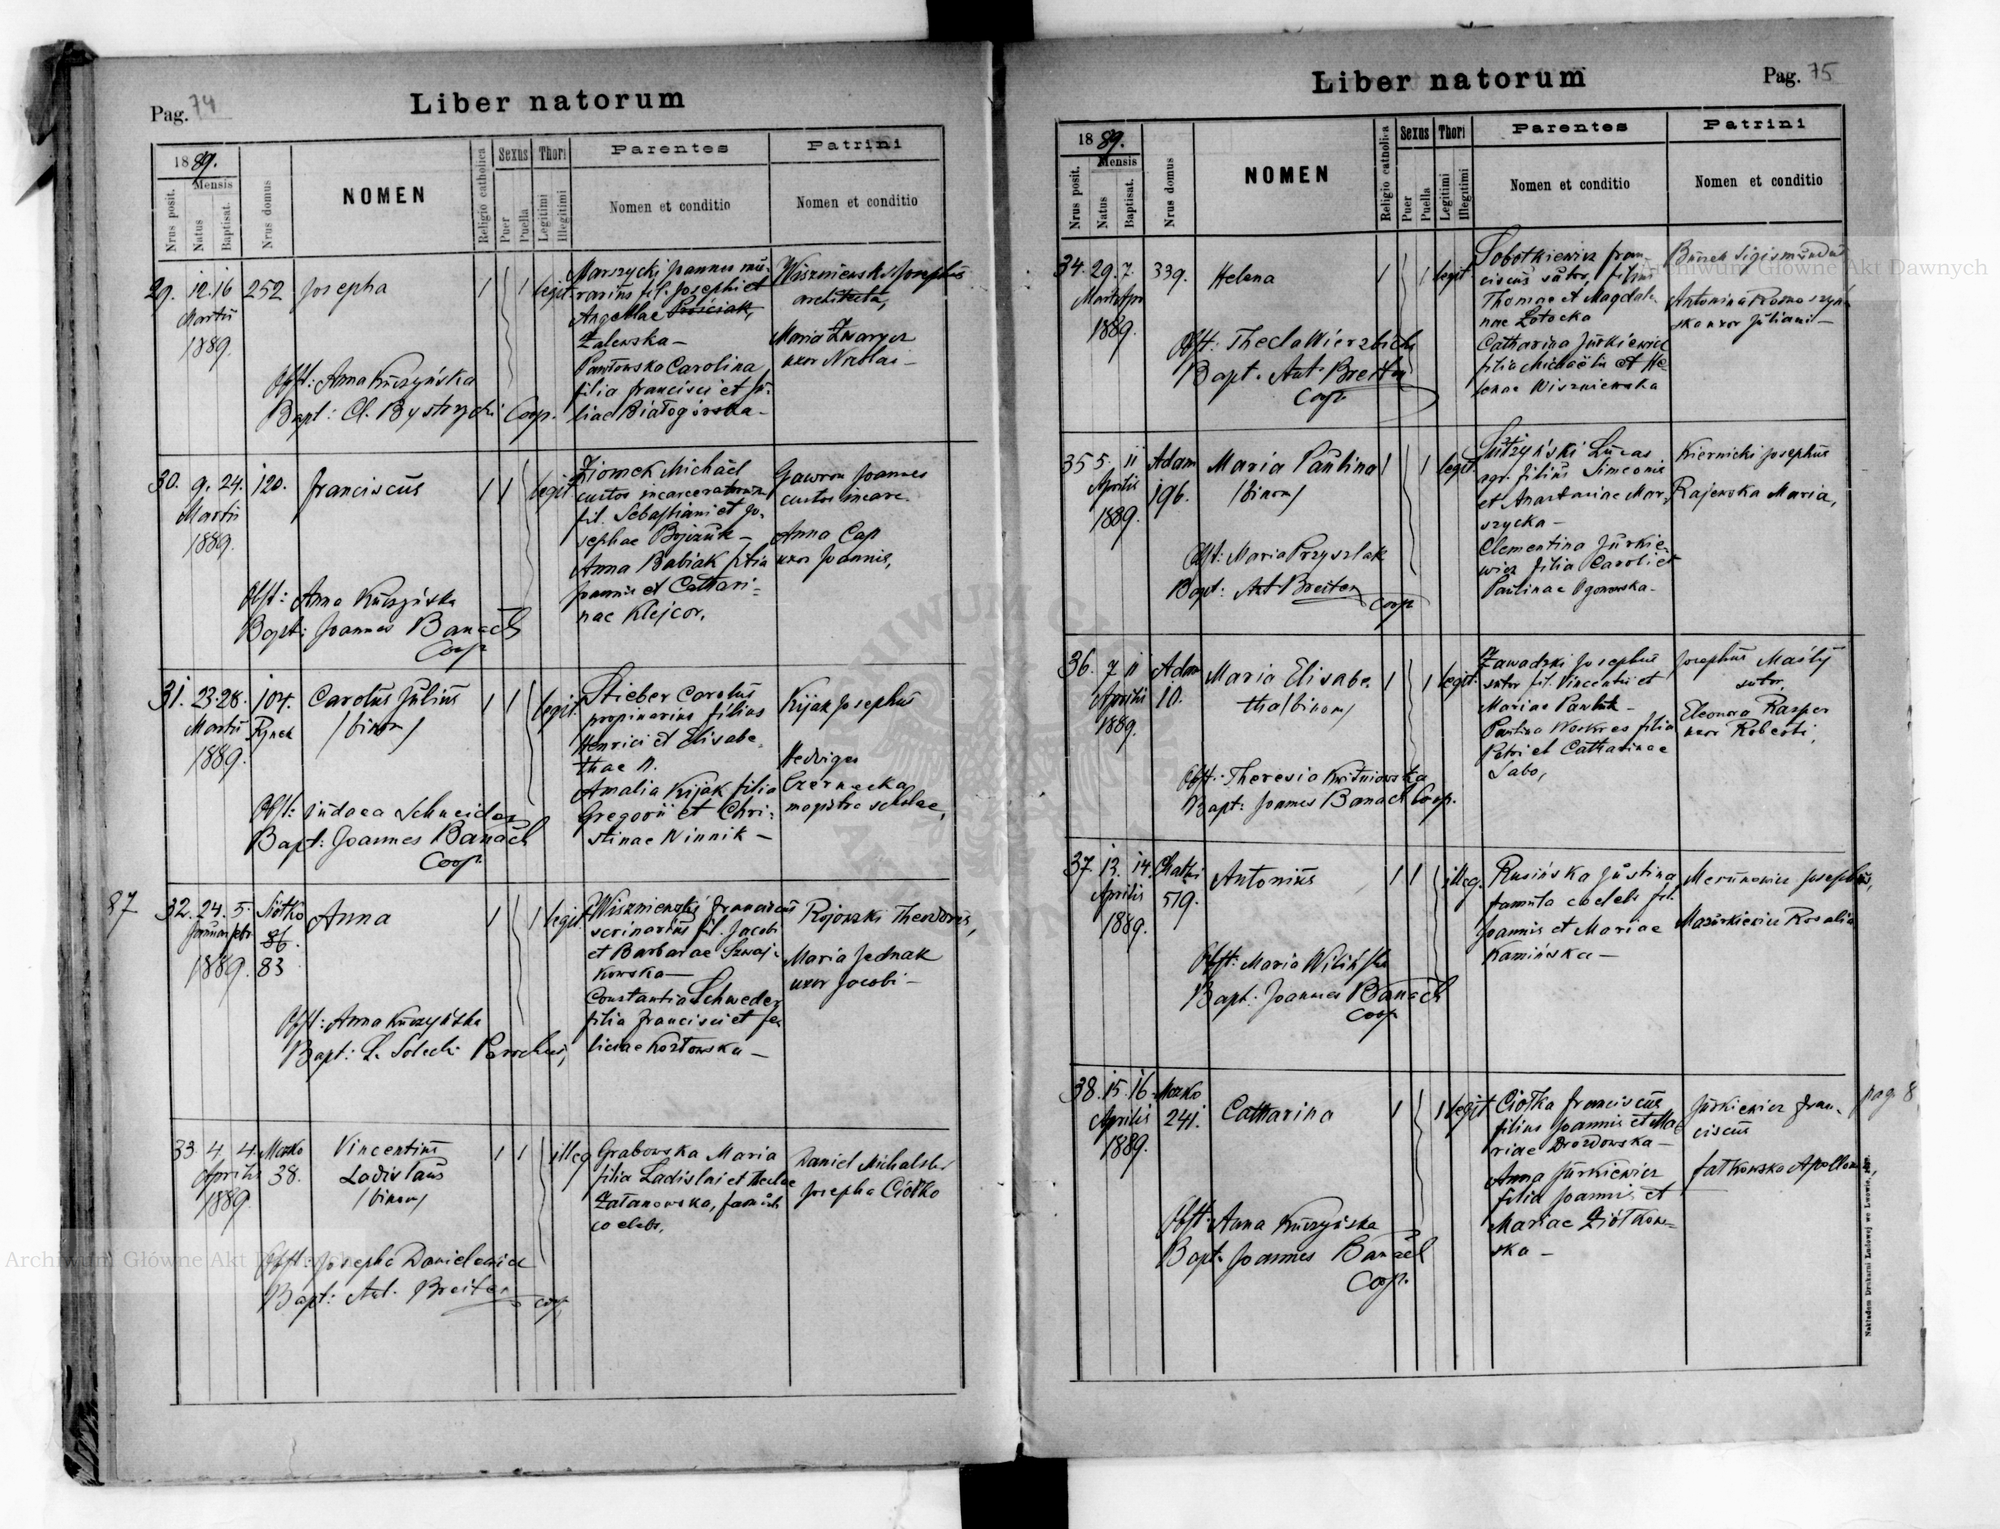 Pag. 74
Liber natorum
1889.
Mensis
Nrus posit.
Natus
Baptisat.
Nrus domus
NOMEN
Religio catholica
Sexus
Puer
Puella
Thori
Legitimi
Illegitimi
Parentes
Nomen et conditio
Patrini
Nomen et conditio
29. 12. 16 252 Josepha 1 1 legit.
Martii
1889.
Obst: Anna Kuczyńska
Bapt: Cl. Bystrzycki Coop.
Marszycki Joannes mu-
rarius fil. Josephi et
Angellae
Zalewska —
Pawłowska Carolina
filia Francisci et Ju-
liae Białogórska —
Wiszniewski Josephus
architecta,
Maria Zwarycz
uxor Nicolai —
30. 9. 24. 120. Franciscus 1 1 legit.
Martii
1889.
Obst: Anna Kuczyńska
Bapt: Joannes Banach
Coop.
Ziomek Michael
custos incarceratorum
fil. Sebastiani et Jo-
sephae
Anna Babiak filia
Joannis et Cathari-
nae Klejcor.
Gawron Joannes
custos incarc.
Anna Cap
uxor Joannis,
31. 23. 28. 104. Carolus Julius 1 1 legit.
Martii Rynek /binom/
1889.
Obst: Judaea Schneider
Bapt: Joannes Banach
Coop.
Stieber Carolus
propinarius filius
Henrici et Elisabe-
thae N.
Amalia Kijak filia
Gregorii et Chri-
stinae Winnik —
Kijak Josephus
Hedviges
Czernecka
magistra scholae,
87
32. 24. 5. Siółko Anna 1 1 legit.
Januar Febr 86.
1889. 83
Obst: Anna Kuczyńska
Bapt: L. Solecki Parochus,
Wiszniewski Franciscus
scrinarius fil. Jacobi
et Barbarae Szwaj-
kowska —
Constantia Schweder
filia Francisci et Fe-
liciae Kozłowska —
Rojowski Theodorus,
Maria Jednak
uxor Jacobi —
33. 4. 4. Mazko Vincentius 1 1 illeg.
Aprilis 38. Ladislaus
1889. /binom/
Obst: Josepha Danielewicz
Bapt: Ant. Breiter coop.
Grabowska Maria
filia Ladislai et Theclae
Zatanowska, famula
coelebs,
Daniel Michalski
Josepha Ciółko
Pag. 75
Liber natorum
1889.
Mensis
Nrus posit.
Natus
Baptisat.
Nrus domus
NOMEN
Religio catholica
Sexus
Puer
Puella
Thori
Legitimi
Illegitimi
Parentes
Nomen et conditio
Patrini
Nomen et conditio
34. 29. 7. 339. Helena 1 1 legit.
Martii Apr
1889.
Obst: Thecla Wierzbicka
Bapt. Ant. Breiter
Coop.
Sobotkiewicz Fran-
ciscus sutor, filius
Thomae et Magdale-
nae Łotocka
Catharina Jurkiewicz
filia Michaëlis et He-
lenae Wiszniewska
Buszek Sigismundus
Antonina Roznoszyń-
ska uxor Juliani —
35 5. 11 Adam Maria Paulina 1 1 legit.
Aprilis 196. /binom/
1889.
Obst: Maria Przyszlak
Bapt: Ant Breiter
Coop
Lucas
agr. filius Simeonis
et Anastasiae Mar-
szycka —
Clementina Jurkie-
wicz filia Caroli et
Paulinae Ogonowska —
Kiernicki Josephus
Rajewska Maria,
36. 7 11 Adam Maria Elisabe- 1 1 legit.
Aprilis 10. tha /binom/
1889.
Obst: Theresia Kwiśniowska
Bapt: Joannes Banach Coop.
Zawadzki Josephus
sutor fil. Vincentii et
Mariae Pawluk —
Paulina Woskres filia
Petri et Catharinae
Sabo,
Josephus Maśly
sutor,
Eleonora Kasper
uxor Roberti,
37 13. 14. Chatki Antonius 1 1 illeg.
Aprilis 519.
1889.
Obst: Maria Wilińska
Bapt: Joannes Banach
Coop
Rusińska Justina
famula coelebs fil.
Joannis et Mariae
Kamińska —
Merunowicz Josephus,
Mazurkiewicz Rosalia
38. 15. 16. Mazko Catharina 1 1 legit.
Aprilis 241.
1889.
Obst: Anna Kuczyńska
Bapt: Joannes Banach
Coop.
Ciółka Franciscus
filius Joannis et Ma-
riae Drozdowska —
Anna Jurkiewicz
filia Joannis et
Mariae Ziółkow-
ska —
Jurkiewicz Fran-
ciscus
Fatkowska Apollonia,
pag. 8
Nakładem Drukarni Ludowej we Lwowie,
Archiwum Główne Akt Dawnych
Archiwum Główne Akt Dawnych